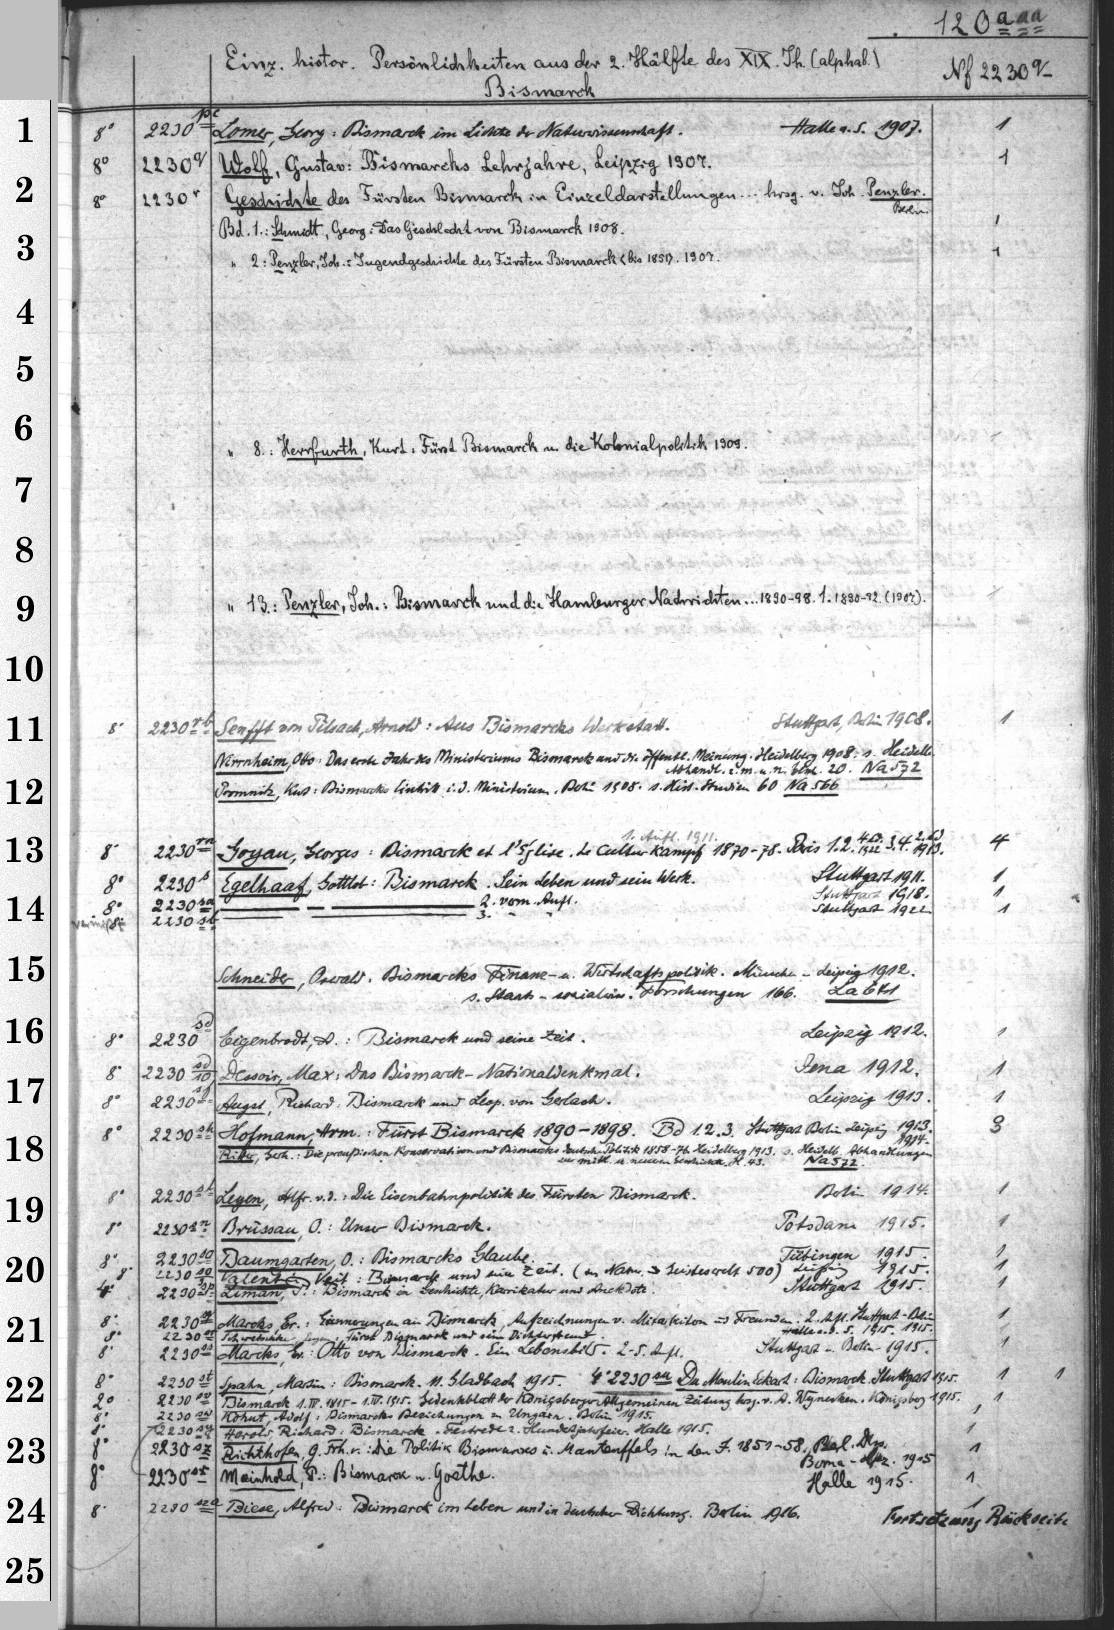 120 aaa
Einz. histor. Persönlichkeiten aus der 2. Hälfte des XIX. Jh. (alphab.)
Nf 2230 q-
Bismarck
1 8° 2230 pe Lomer, Georg: Bismarck im Lichte der Naturwissenschaft. Halle a. S. 1907. 1
8° 2230 q Wolf, Gustav: Bismarcks Lehrjahre, Leipzig 1907. 1
2 8° 2230 r Geschichte des Fürsten Bismarck in Einzeldarstellungen... hrsg. v. Joh. Penzler.
Berlin
Bd. 1.: Schmidt, Georg: Das Geschlecht von Bismarck 1908. 1
3 " 2: Penzler, Joh.: Jugendgeschichte des Fürsten Bismarck (bis 1851). 1907. 1
4
5
6
" 8.: Herrfurth, Kurt: Fürst Bismarck u. die Kolonialpolitik 1909.
7
8
9 " 13.: Penzler, Joh.: Bismarck und die Hamburger Nachrichten... 1890-98. 1. 1890-92. (1907).
10
11 8° 2230 rb Senfft von Pilsach, Arnold: Aus Bismarcks Werkstatt. Stuttgart, Berlin 1908. 1
Nirrnheim, Otto: Das erste Jahr des Ministeriums Bismarck und die öffentl. Meinung. Heidelberg 1908. s. Heidelb.
Abhandl. z. m. u. n. 20. Na 572
12 Promnitz, Kurt: Bismarcks Eintritt i. d. Ministerium. Berlin 1908. s. Hist. Studien 60 Na 566
1. Aufl. 1911.
13 8° 2230 Goyau, Georges: Bismarck et l'Église. Le Culturkampf 1870-78. Paris 1.2. 3.4. 1913. 4
8° 2230 s Egelhaaf, Gottlob: Bismarck. Sein Leben und sein Werk. Stuttgart 1911. 1
14 8° 2230 sa — 2. verm. Aufl. Stuttgart 1918. 1
2230 sb 3. " " Stuttgart 1922 1
15 Schneider, Oswald. Bismarcks Finanz- u. Wirtschaftspolitik. München-Leipzig 1912.
s. Staats- u. Forschungen 166.
16 8° 2230 sd Eigenbrodt, A.: Bismarck und seine Zeit. Leipzig 1912. 1
17 8° 2230 sd/10 Dessoir, Max: Das Bismarck-Nationaldenkmal. Jena 1912. 1
8° 2230 sf Augst, Richard. Bismarck und Leop. von Gerlach. Leipzig 1913. 1
18 8° 2230 sh Hofmann, Herm.: Fürst Bismarck 1890-1898. Bd 1.2.3. Stuttgart Berlin Leipzig 1913. 3
1914.
Ritter, Gerh.: Die preußischen Konservativen und Bismarcks deutsche Politik 1858-76. Heidelberg 1913. s. Heidelb. Abhandlungen
zur mittl. u. neueren Geschichte. H. 43. Na 572.
19 8° 2230 Leyen, Alfr. v. d.: Die Eisenbahnpolitik des Fürsten Bismarck. Berlin 1914. 1
8° 2230 Brüssau, O.: Unser Bismarck. Potsdam 1915. 1
20 8° 2230 so Baumgarten, O.: Bismarcks Glaube. Tübingen 1915. 1
8° 2230 Valentin, Veit: Bismarck und seine Zeit. (in Natur u. Geisteswelt 500) Leipzig 1915. 1
4° 2230 Liman, P.: Bismarck in Geschichte, Karikatur und Anekdote. Stuttgart 1915. 1
21 8° 2230 Marcks, Er.: Erinnerungen an Bismarck, Aufzeichnungen v. Mitarbeitern u. Freunden. 2. Aufl. Stuttgart-Berlin 1915.
8° 2230 Fürst Bismarck und sein Halle a. S. 1915.
8° 2230 ss Marcks, Er.: Otto von Bismarck. Ein Lebensbild. 2-5. Aufl. Stuttgart u. Berlin 1915. 1
22 8° 2230 st Spahn, Martin: Bismarck. M. Gladbach 1915. 4° 2230 su Du Moulin Eckart: Bismarck. Stuttgart 1915. 1 1
2° 2230 sv Bismarck 1.IV.1815 - 1.IV.1915. Gedenkblatt der Königsberger Allgemeinen Zeitung hrsg. v. A. Wyneken. Königsberg 1915. 1
8° 2230 Kohut, Adolf: Bismarcks Beziehungen zu Ungarn. Berlin 1915.
8° 2230 sy Richard: Bismarck. Festrede z. Hundertjahrfeier. Halle 1915. 1
23 8° 2230 sz Richthofen, g. Frh. v.: Die Politik Bismarcks u. Manteuffels in den J. 1851-58. 1
Borna-Lpz. 1915
8° 2230 Meinhold, P.: Bismarck u. Goethe. Halle 1915. 1
24 8° 2230 sza Biese, Alfred: Bismarck im Leben und in deutscher Dichtung. Berlin 1916. 1
Fortsetzung Rückseite
25